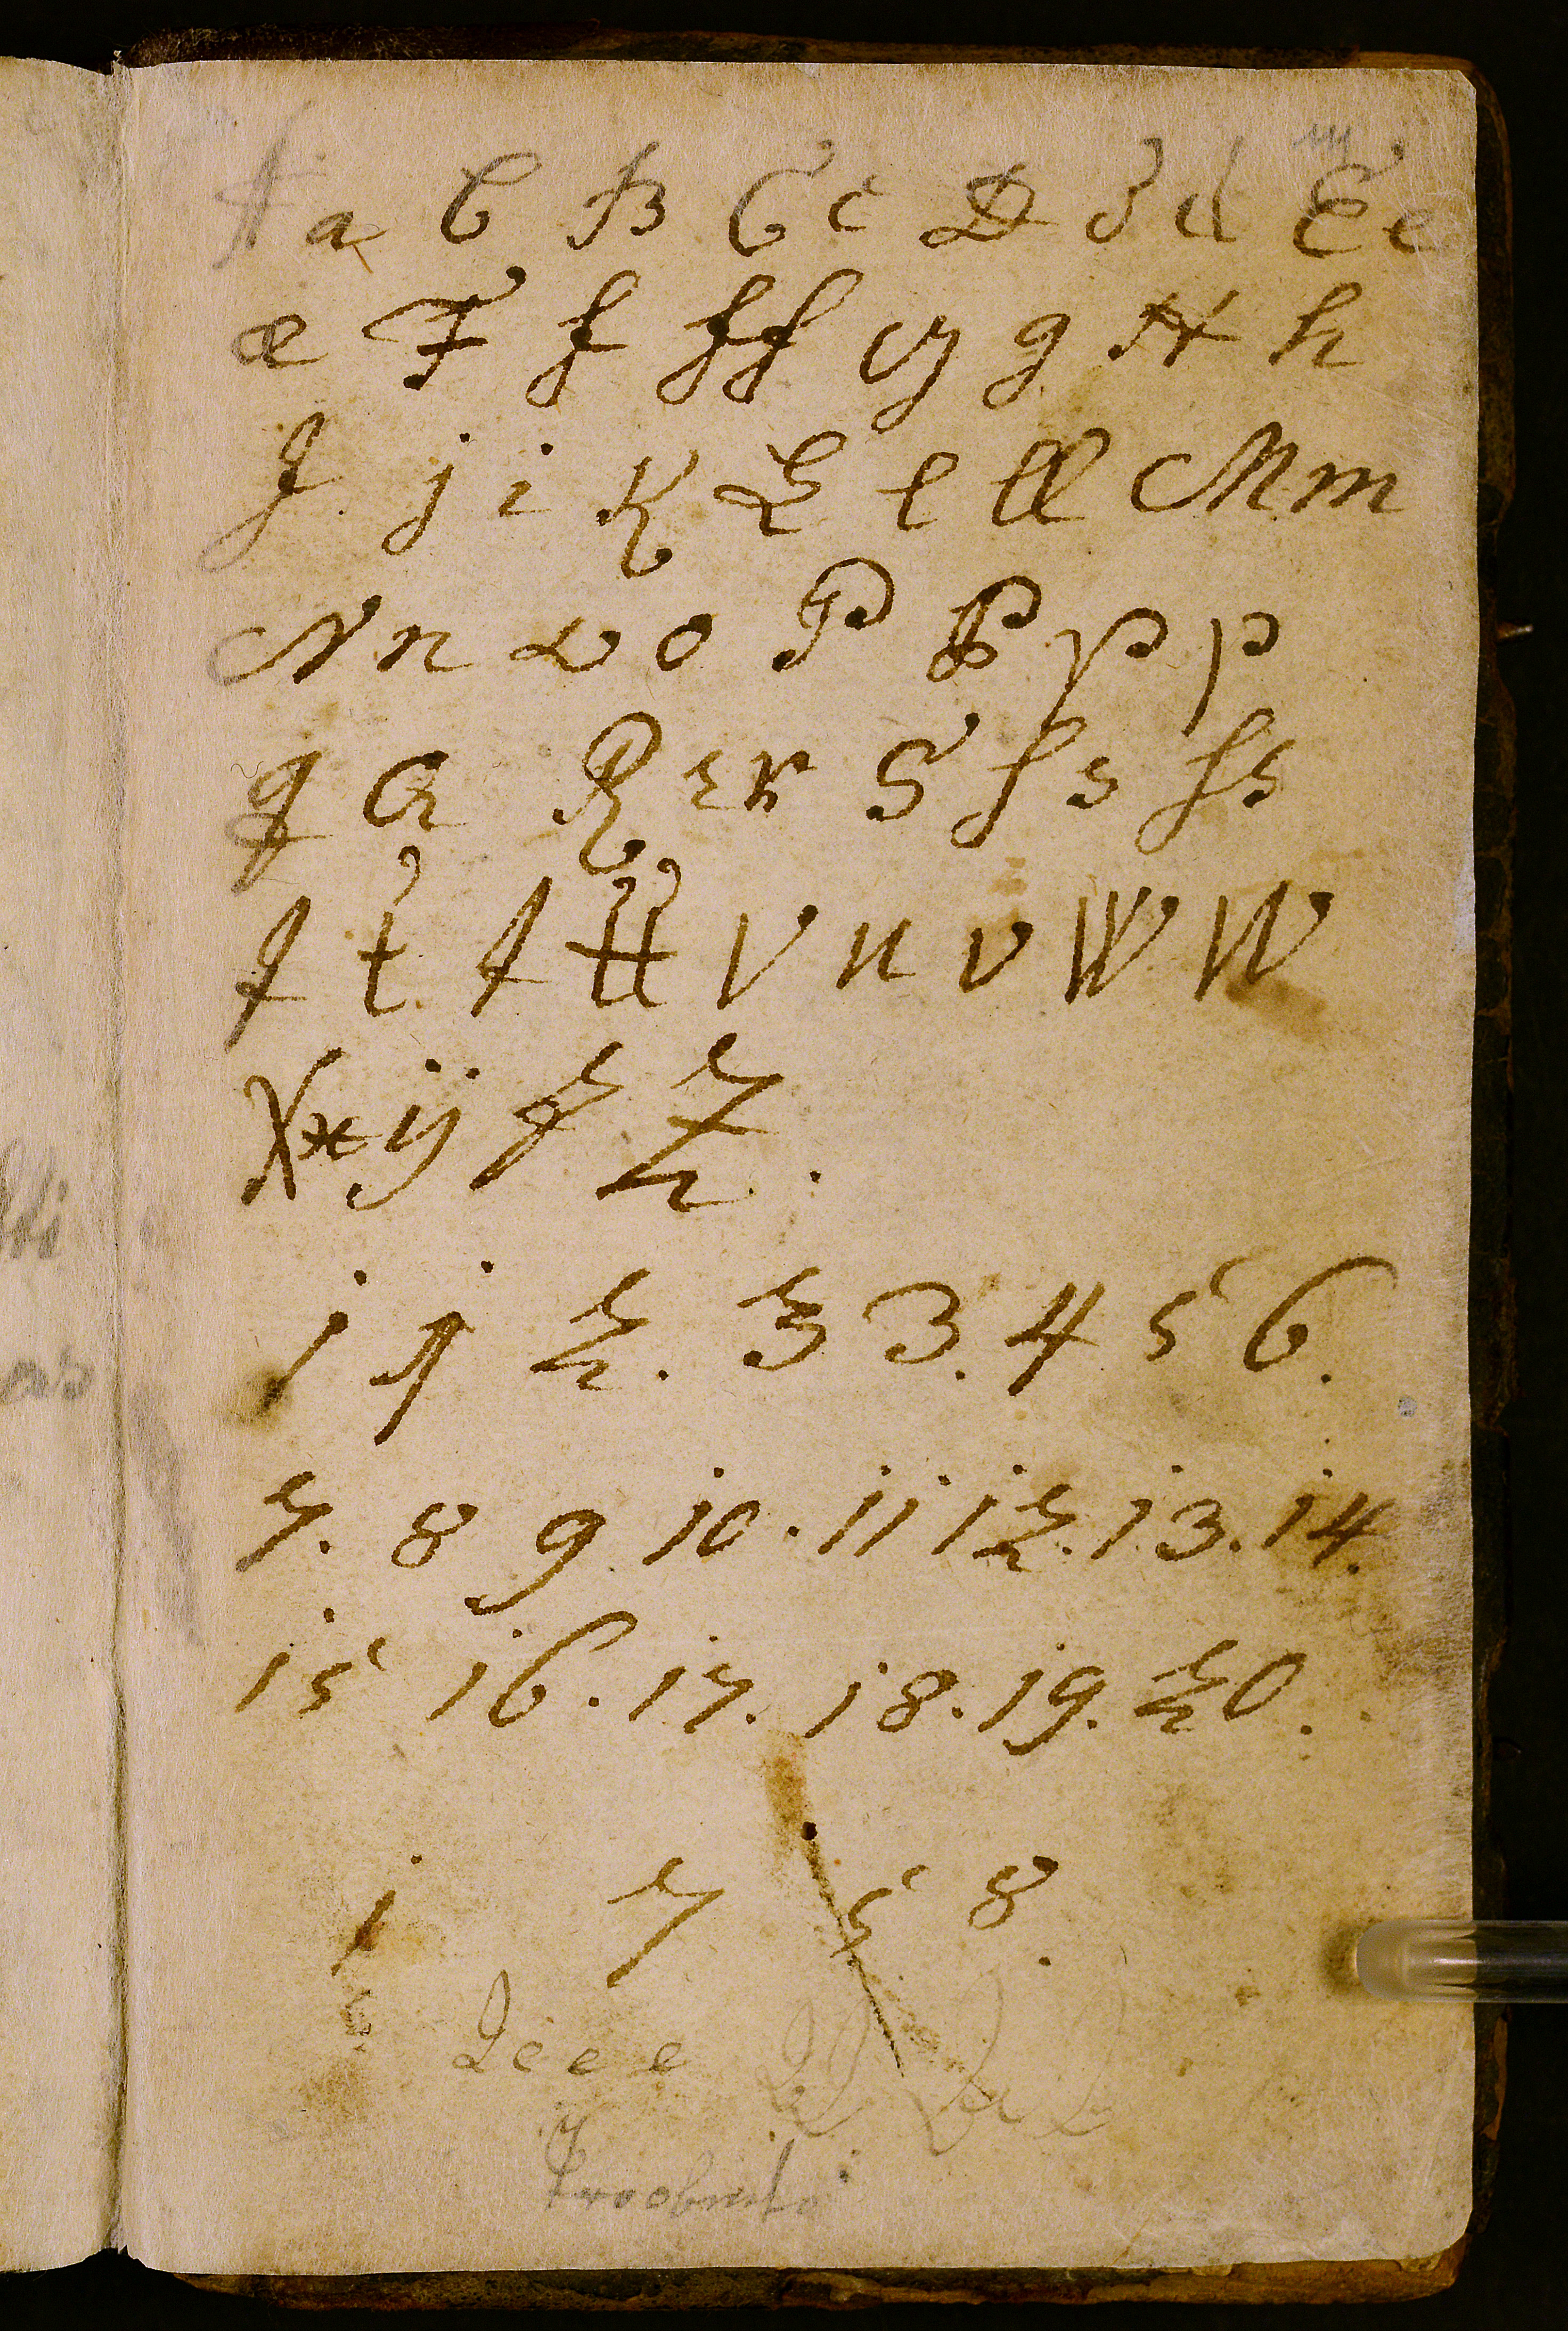 A a b B C c D d d E e
æ F f ff G g H h
J j i K L l ll M m
N n O o P P p p
q Q R r r S ſ s ſs
T t t tt V u v W W
X x ij z Z .
1 1 2 . 3 3 . 4 5 6 .
7 . 8 9 10 . 11 12 . 13 . 14 .
15 16 . 17 . 18 . 19 . 20 .
1 7 5 8 .